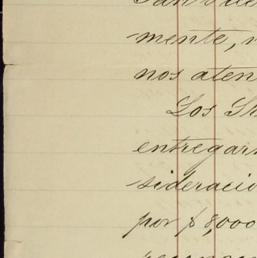 mente,
nos aten
Los Sr
entregar
sideracio
por $8,000